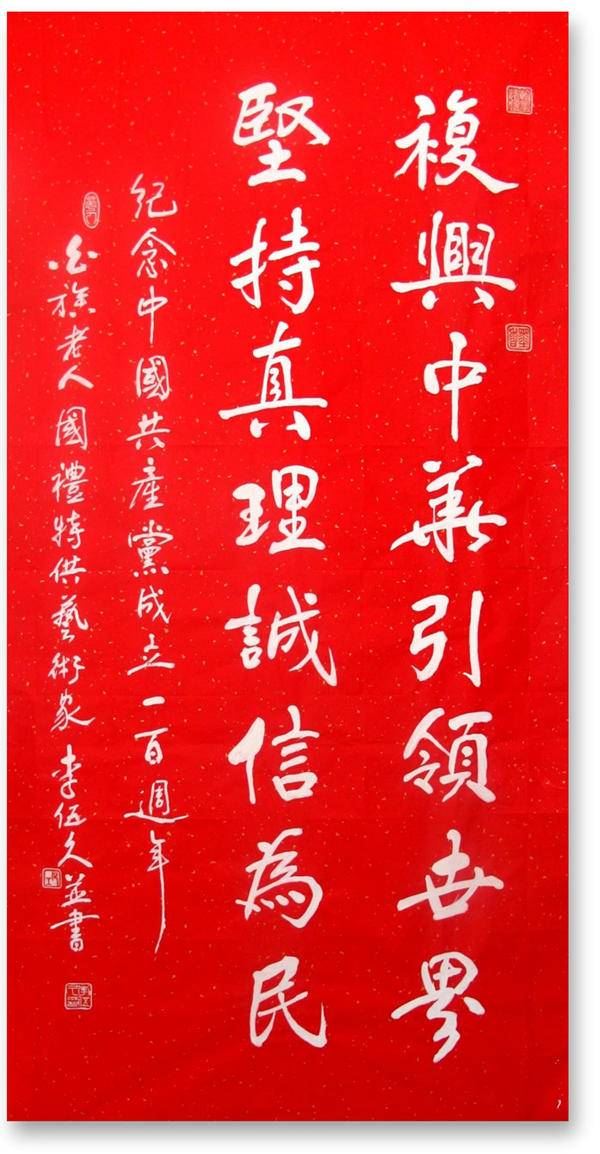 複興中華引領世界
堅持真理誠信為民
紀念中國共產黨成立一百週年
族老人國禮特供藝術家李伍久並書